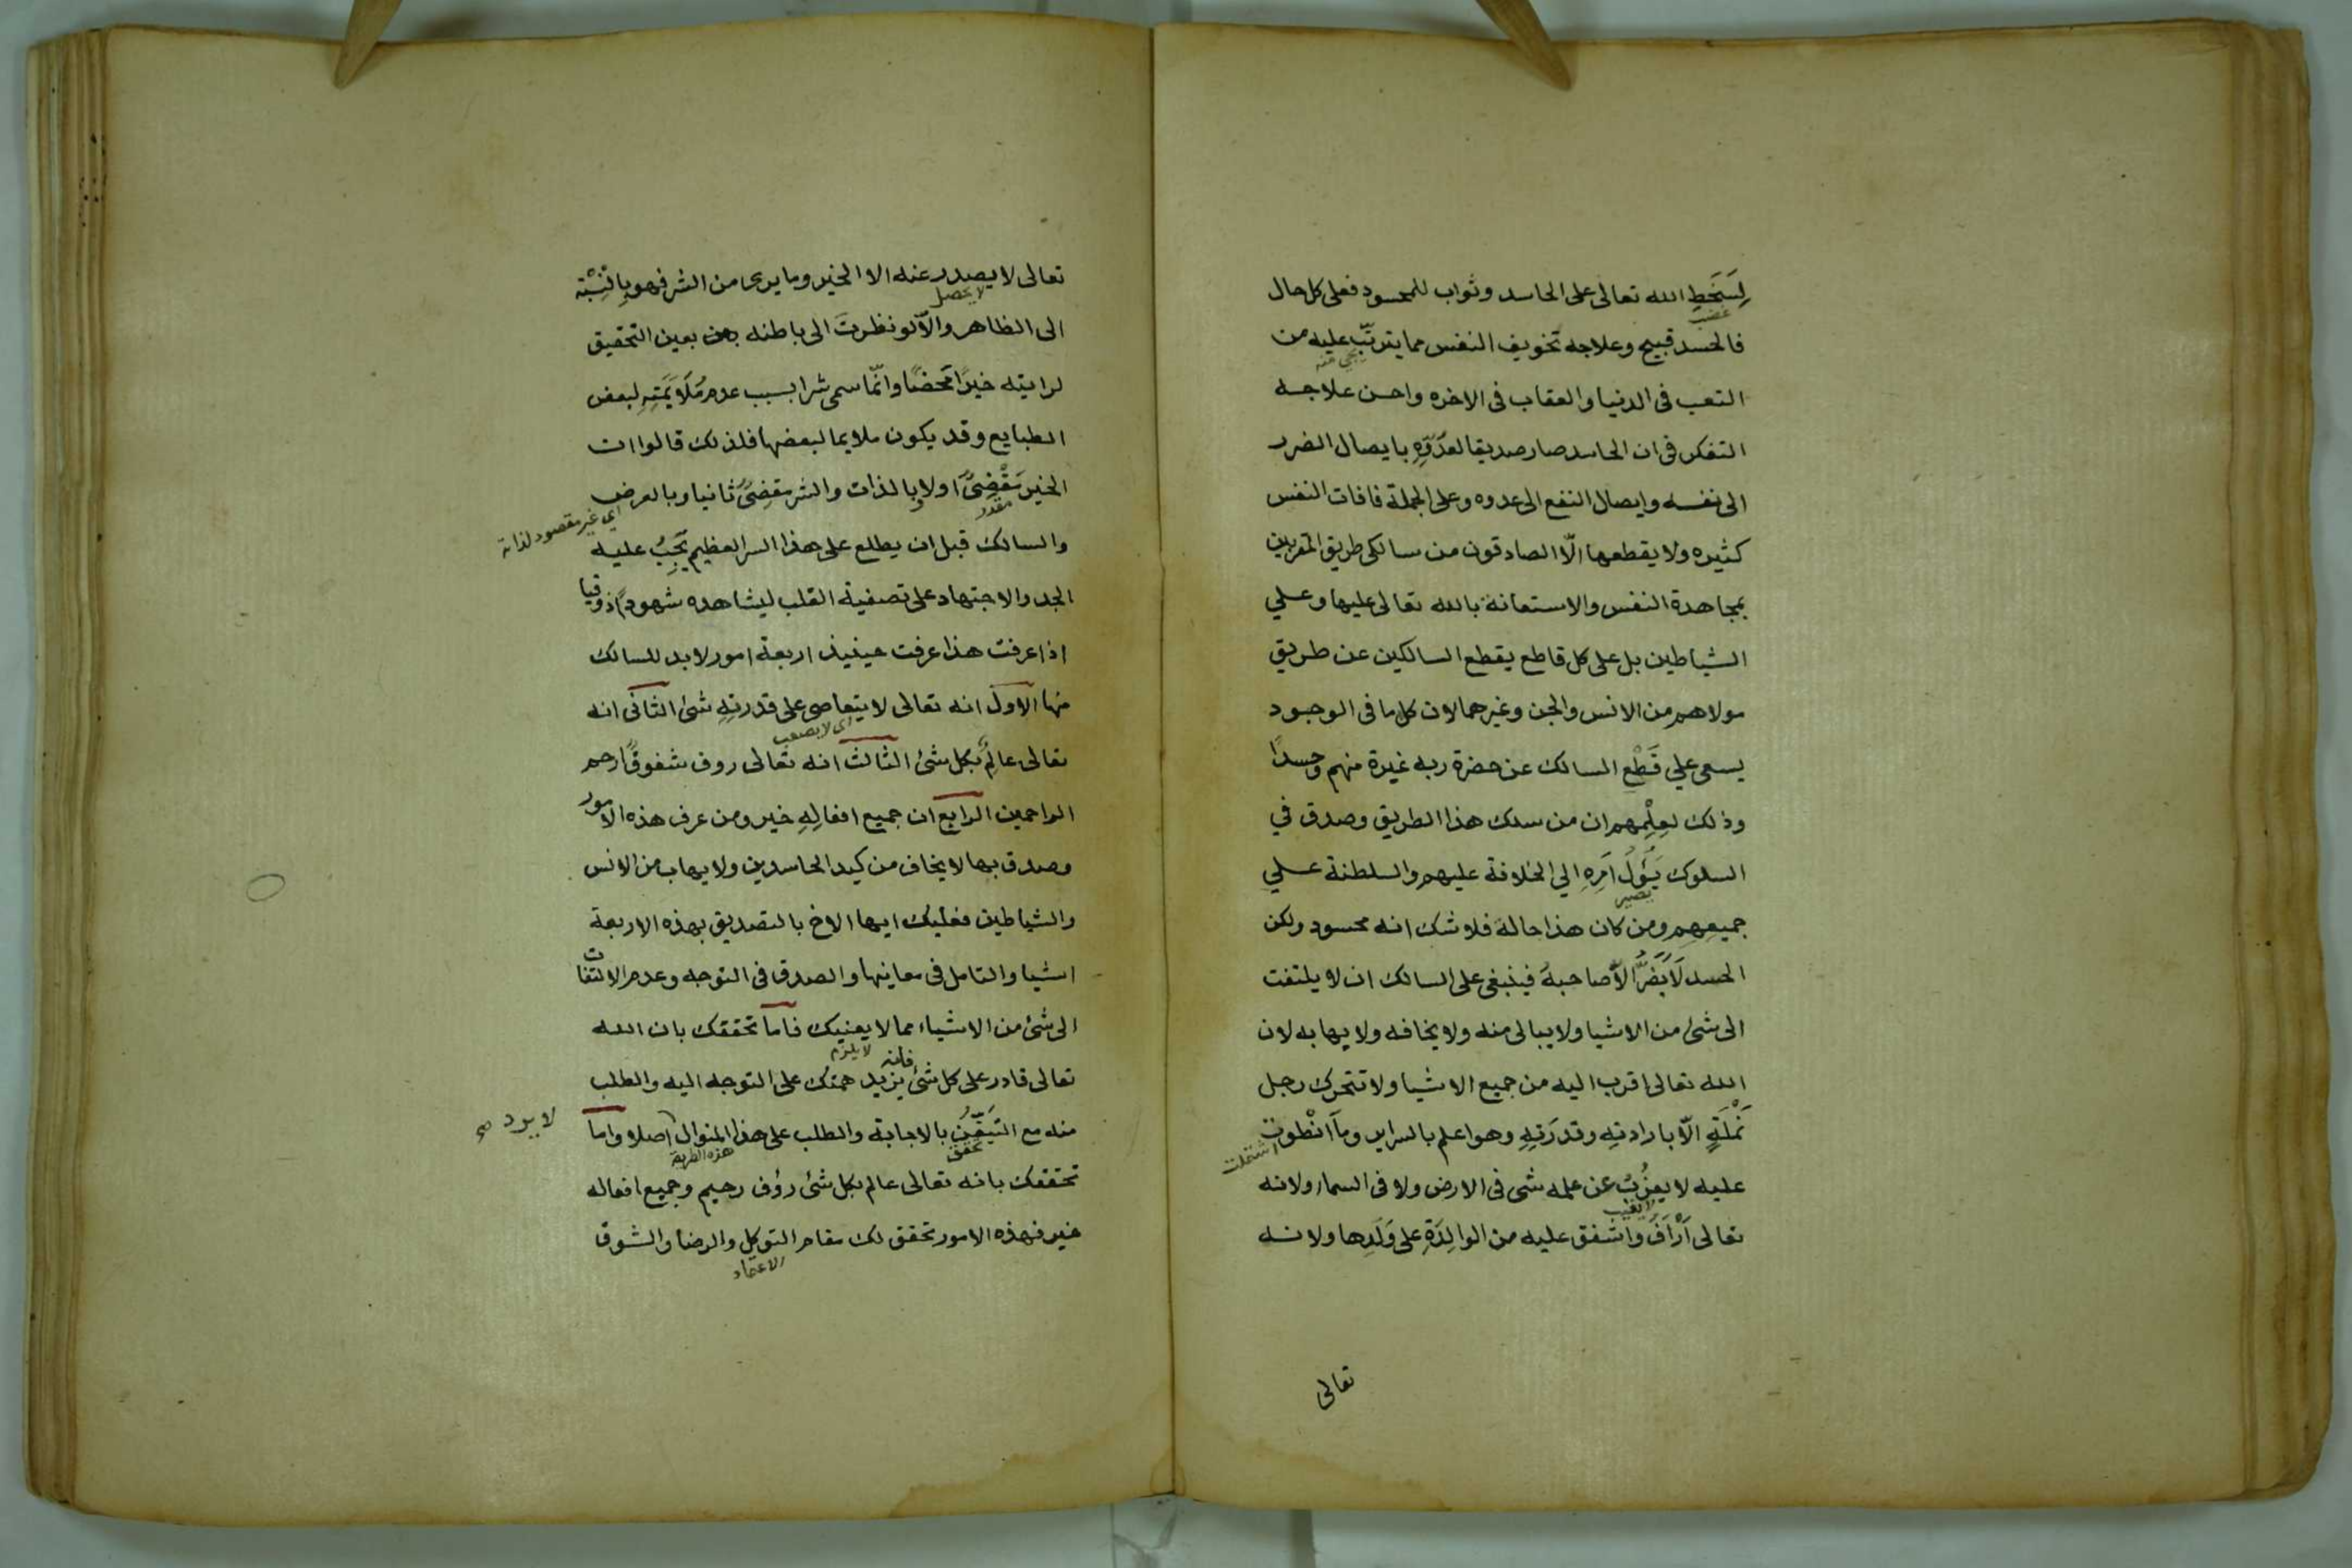 لِسَخَطِ الله تعالى على الحاسد وثواب للمحسود فعلى كل حال
غضب
فالحسد قبيح وعلاجه تخويف النفس مما يترتّب عليه من
التعب فى الدنيا والعقاب فى الاخره واحسن علاجه
التفكر فى ان الحاسد صار صديقا لعدّوِّهِ بايصال الضرر
الى نفسه وايصال النفع الى عدوه وعلى الجملة فافات النفس
كثيره ولا يقطعها الّا الصادقون من سالكى طريق المقربين
بمجاهدة النفس والاستعانة بالله تعالى عليها وعلي
الشياطين بل على كل قاطع يقطع السالكين عن طريق
مولاهم من الانس والجن وغيرهما لان كل ما فى الوجود
يسعى علي قَطْعِ السالك عن حضرة ربه غيرة منهم وحسدًا
وذلك لعِلْمِهم ان من سلك هذا الطريق وصدق في
السلوك يَؤُلُ اَمرِهِ الي الخلافة عليهم والسلطنة علي
يصير
جميعِهِم ومن كان هذا حالة فلا شك انه محسود ولكن
الحسد لَا يَضُرُّ الّا صاحبهُ فينبغى على السالك ان لا يلتفت
الى شئ من الاشيا ولا يبالى منه ولا يخافه ولا يهابه لان
الله تعالى اقرب اليه من جميع الاشيا ولا تتحرك رجل
نَمْلَةٍ الّا بارادتِهِ وقدرَتِهِ وهو اعلم بالسراير ومآ انْطوت
اشتملت
عليه لا يعزُبُ عن علمه شى فى الارض ولا فى السماء ولانه
يغيب
تعالى اَرْاَفَ واشفق عليه من الوالِدَةِ على وَلَدِها ولانه
تعالى
تعالى لا يصدر عنه الا الخير وما يرى من الشر فهو بِالنِسْبَة
لا يحصل
الى الظاهر والّا لو نظرتَ الى باطنه بعين التحقيق
لرايته خيرًا مَحضًا وانّما سمى شرا بسبب عدم مُلَايَمَتِهِ لبعض
الطبايع وقد يكون ملايما لبعضها فلذلك قالوا ان
الخير مَقْضِىٌّ اولا وبالذات والشر مقضِىٌ ثانيا وبالعرض
مقدر
اى غير مقصود لذاته
والسالك قبل ان يطلع على هذا السر العظيم يَجِبُ عليه
الجد والاجتهاد على تصفية القلب ليشاهده شهودًا ذوقيا
اذا عرفت هذا عرفت حينيذ اربعة امور لا بد للسالك
منها الاول انه تعالى لا يتعاصى على قدرتِهِ شئ الثانى انه
اى لا يصعب
تعالى عالِمٌ بكل شئ الثالث انه تعالى روف شفوقٌ ارحم
الراحمين الرابع ان جميع افعالِهِ خير ومن عرف هذه الامور
وصدق بها لا يخاف من كيد الحاسدين ولا يهاب من الانس
والشياطين فعليك ايها الاخ بالتصديق بهذه الاربعة
اشيا والتامل فى معاينها والصدق فى التوجه وعدم الالتفات
الى شئ من الاشياء مما لا يعنيك فاما تحققك بان الله
لا يلزم
فانه
تعالى قادر على كل شئ يزيد همتك على التوجه اليه والطلب
منه مع التَيَقُّنِ بالاجابة والطلب على هذا المنوال اصلا واما
لا يرد صح
تحقق
هذه الطريقة
تحققك بانه تعالى عالم بكل شئ رؤف رحيم وجميع افعاله
خير فهذه الامور تحقق لك مقام التوكل والرضا والشوق
الاعتماد